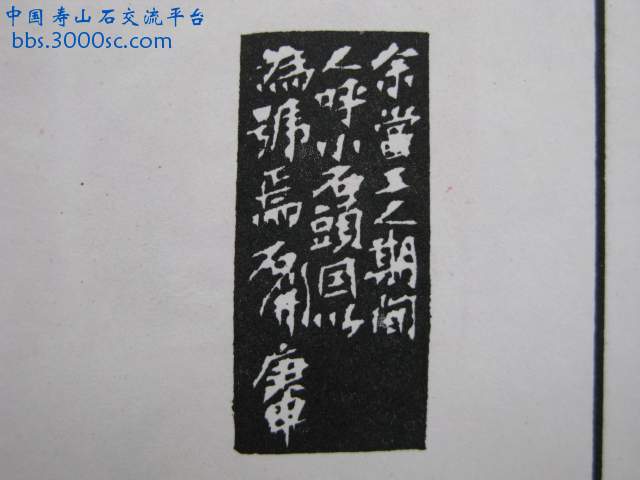 中国寿山石交流平台
bbs.3000sc.com
余當工人期间
人呼小石頭因以
為號焉石開
庚申